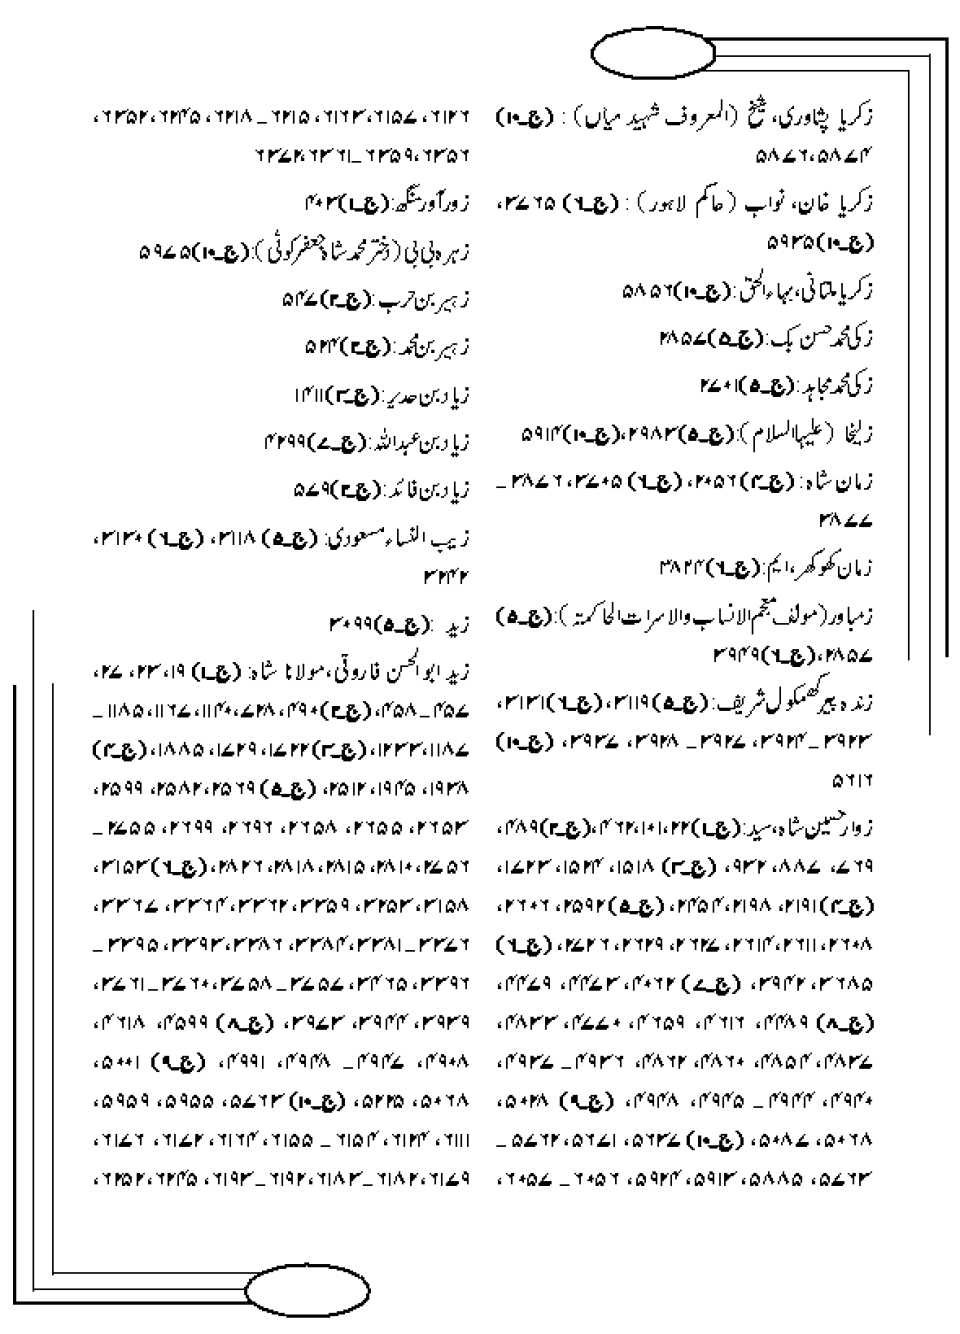 زکریا پشاوری، شیخ (المعروف شہید میاں) : (ج۔۱۰)
۵۸۷۴، ۵۸۷۶
زکریا خان، نواب (حاکم لاہور) : (ج۔۶) ۳۷۶۵،
(ج۔۱۰)۵۹۳۵
زکریا ملتانی، بہاء الحق: (ج۔۱۰)۵۸۵۶
زکی محمد حسن بک: (ج۔۵)۲۸۵۷
زکی محمد مجاہد: (ج۔۵)۲۷۰۱
زلیخا (علیہا السلام): (ج۔۵)۲۹۸۳، (ج۔۱۰)۵۹۱۴
زمان شاہ: (ج۔۴)۲۰۵۶، (ج۔۶)۳۷۰۵، ۳۸۷۶ـ
۳۸۷۷
زمان کھوکھر، ایم: (ج۔۶)۳۸۲۴
زمباور (مولف معجم الانساب والاسرات الحاکمۃ): (ج۔۵)
۲۸۵۷، (ج۔۶)۳۹۴۹
زندہ پیر گھمکول شریف: (ج۔۵)۳۱۱۹، (ج۔۶)۳۱۳۱،
۳۹۲۳ـ۳۹۲۴، ۳۹۲۷ـ ۳۹۲۸، ۳۹۳۷، (ج۔۱۰)
۵۶۱۶
زوار حسین شاہ، سید: (ج۔۱)۲۲، ۱۰۱، ۴۶۲، (ج۔۲)۴۸۹،
۷۶۹، ۸۸۷، ۹۳۲، (ج۔۳) ۱۵۱۸، ۱۵۲۴، ۱۷۲۳،
(ج۔۴)۲۱۹۱، ۲۱۹۸، ۲۴۵۴، (ج۔۵)۲۵۹۲، ۲۶۰۶،
۲۶۰۸، ۲۶۱۱، ۲۶۱۴، ۲۶۲۷، ۲۶۲۹، ۲۷۲۶، (ج۔۶)
۳۶۸۵، ۳۹۴۲، (ج۔۷)۴۰۶۲، ۴۴۷۳، ۴۴۷۹،
(ج۔۸)۴۴۸۹، ۴۶۱۶، ۴۶۵۹، ۴۷۷۰، ۴۸۳۳،
۴۸۳۷، ۴۸۵۴، ۴۸۶۰، ۴۸۶۲، ۴۹۳۶ـ ۴۹۳۷،
۴۹۴۰، ۴۹۴۴ـ ۴۹۴۵، ۴۹۴۸، (ج۔۹) ۵۰۲۸،
۵۰۶۸، ۵۰۸۷، (ج۔۱۰)۵۶۳۷، ۵۶۷۱، ۵۷۶۲ـ
۵۷۶۳، ۵۸۸۵، ۵۹۱۳، ۵۹۲۴، ۶۰۵۶ـ ۶۰۵۷،
۶۱۲۶، ۶۱۵۷، ۶۱۶۳، ۶۲۱۵ـ ۶۲۱۸، ۶۲۴۵، ۶۳۵۲،
۶۳۵۶، ۶۳۵۹ـ ۶۳۶۱، ۶۳۷۲
زور آور سنگھ: (ج۔۱)۴۰۳
زہرہ بی بی (دختر محمد شاہ جعفر کوٹی): (ج۔۱۰)۵۹۷۵
زہیر بن حرب: (ج۔۲)۵۴۷
زہیر بن محمد: (ج۔۲)۵۲۴
زیاد بن حدیر: (ج۔۳)۱۴۱۱
زیاد بن عبداللہ: (ج۔۷)۴۲۹۹
زیاد بن فائد: (ج۔۲)۵۷۹
زیب النساء مسعودی: (ج۔۵) ۳۱۱۸، (ج۔۶) ۳۱۳۰،
۳۲۴۲
زید : (ج۔۵)۳۰۹۹
زید ابوالحسن فاروقی، مولانا شاہ: (ج۔۱) ۱۹، ۲۳، ۲۷،
۴۵۷ـ ۴۵۸، (ج۔۲)۴۹۰، ۷۲۸، ۱۱۴۰، ۱۱۶۷، ۱۱۸۵ـ
۱۱۸۷، ۱۲۳۳، (ج۔۳)۱۷۲۲، ۱۷۲۹، ۱۸۸۵، (ج۔۴)
۱۹۳۸، ۱۹۴۵، ۲۵۱۲، (ج۔۵)۲۵۶۹، ۲۵۸۲، ۲۵۹۹،
۲۶۵۳، ۲۶۵۵، ۲۶۵۸، ۲۶۹۶، ۲۶۹۹، ۲۷۵۵ـ
۲۷۵۶، ۲۸۱۰، ۲۸۱۵، ۲۸۱۸، ۲۸۲۶، (ج۔۶)۳۱۵۳،
۳۱۵۸، ۳۲۵۳، ۳۳۵۹، ۳۳۶۲، ۳۳۶۴، ۳۳۶۷،
۳۳۷۶ـ ۳۳۸۱، ۳۳۸۴، ۳۳۸۶، ۳۳۹۳، ۳۳۹۵ـ
۳۳۹۶، ۳۴۶۵، ۳۷۵۷ـ ۳۷۵۸، ۳۷۶۰ـ۳۷۶۱،
۳۹۳۹، ۳۹۴۴، ۳۹۷۳، (ج۔۸) ۴۵۹۹، ۴۶۱۸،
۴۹۰۸، ۴۹۴۷ـ ۴۹۴۸، ۴۹۹۱، (ج۔۹) ۵۰۰۱،
۵۰۶۸، ۵۲۲۵، (ج۔۱۰)۵۷۶۳، ۵۹۵۵، ۵۹۵۹،
۶۱۱۱، ۶۱۲۴، ۶۱۵۴ـ ۶۱۵۵، ۶۱۶۴، ۶۱۷۲، ۶۱۷۶،
۶۱۷۹، ۶۱۸۲ـ ۶۱۸۳، ۶۱۹۲ـ ۶۱۹۳، ۶۲۴۵، ۶۲۵۲،